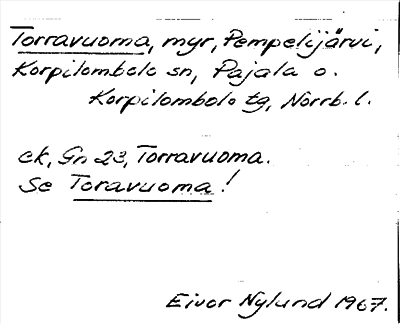 Torravuoma, myr, Pempelijärvi,
Korpilombolo sn, Pajala o.
Korpilombolo tg, Norrb. l.
ek, Gn 23, Torravuoma.
Se Toravuoma!
Eivor Nylund 1967.